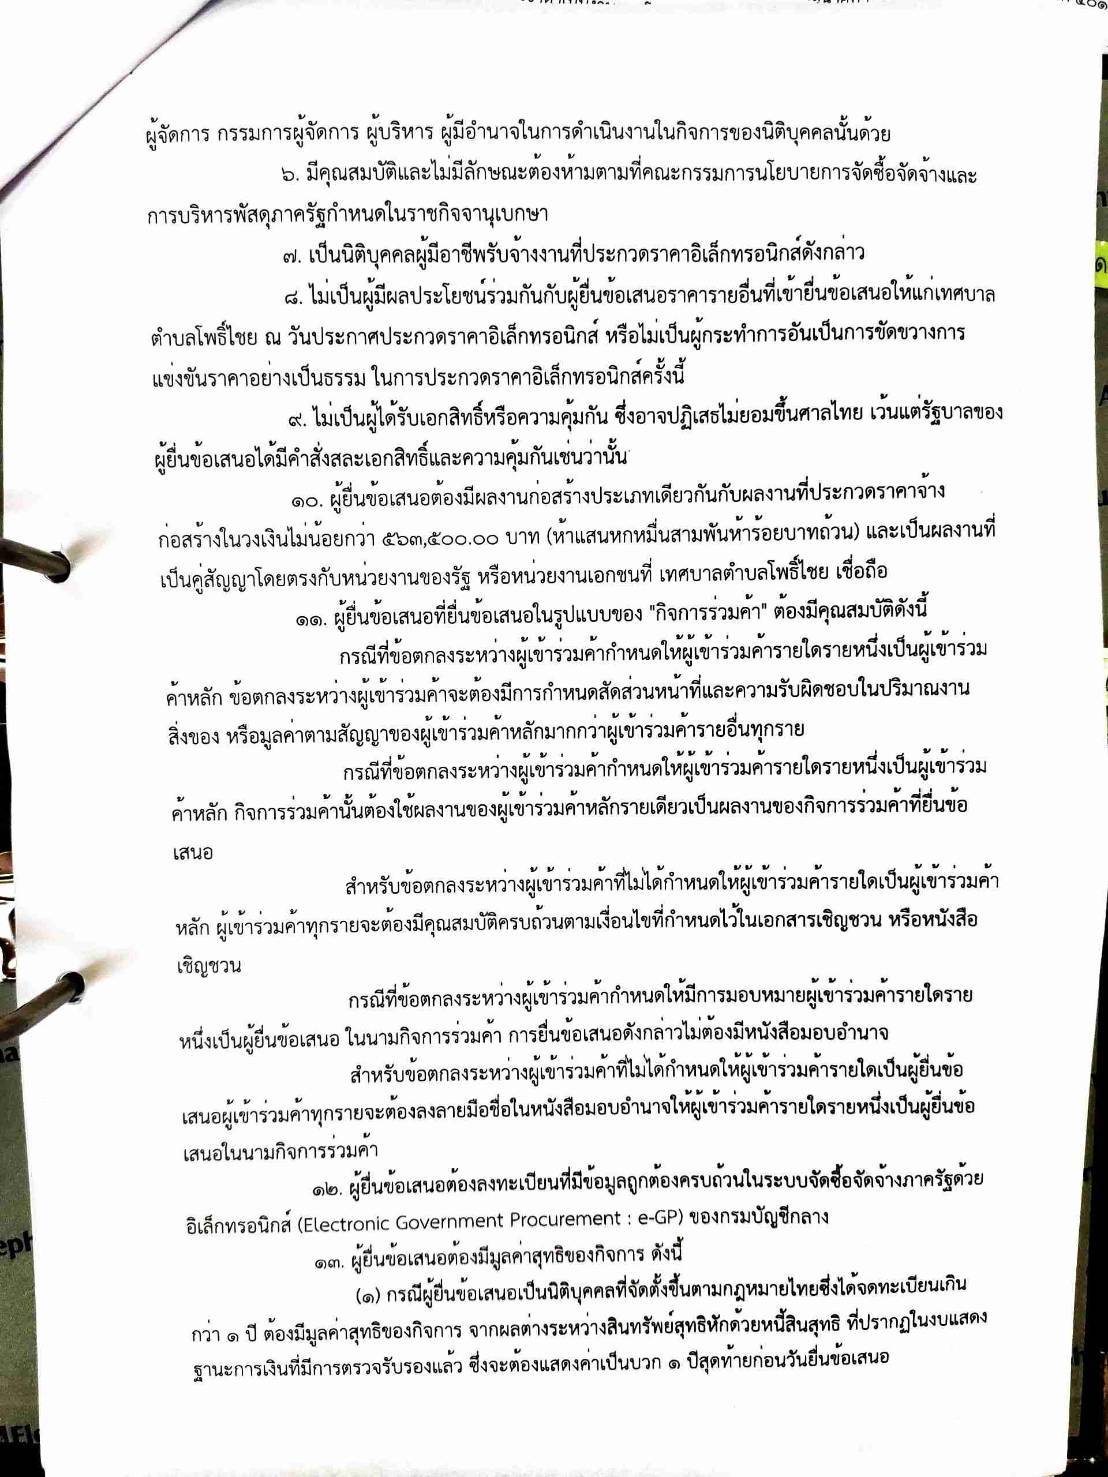 ผู้จัดการ กรรมการผู้จัดการ ผู้บริหาร ผู้มีอำนาจในการดำเนินงานในกิจการของนิติบุคคลนั้นด้วย
๖. มีคุณสมบัติและไม่มีลักษณะต้องห้ามตามที่คณะกรรมการนโยบายการจัดซื้อจัดจ้างและ
การบริหารพัสดุภาครัฐกำหนดในราชกิจจานุเบกษา
๗. เป็นนิติบุคคลผู้มีอาชีพรับจ้างงานที่ประกวดราคาอิเล็กทรอนิกส์ดังกล่าว
๘. ไม่เป็นผู้มีผลประโยชน์ร่วมกันกับผู้ยื่นข้อเสนอราคารายอื่นที่เข้ายื่นข้อเสนอให้แก่เทศบาล
ตำบลโพธิ์ไชย ณ วันประกาศประกวดราคาอิเล็กทรอนิกส์ หรือไม่เป็นผู้กระทำการอันเป็นการขัดขวางการ
แข่งขันราคาอย่างเป็นธรรม ในการประกวดราคาอิเล็กทรอนิกส์ครั้งนี้
๙. ไม่เป็นผู้ได้รับเอกสิทธิ์หรือความคุ้มกัน ซึ่งอาจปฏิเสธไม่ยอมขึ้นศาลไทย เว้นแต่รัฐบาลของ
ผู้ยื่นข้อเสนอได้มีคำสั่งสละเอกสิทธิ์และความคุ้มกันเช่นว่านั้น
๑๐. ผู้ยื่นข้อเสนอต้องมีผลงานก่อสร้างประเภทเดียวกันกับผลงานที่ประกวดราคาจ้าง
ก่อสร้างในวงเงินไม่น้อยกว่า ๕๖๓,๕๐๐.๐๐ บาท (ห้าแสนหกหมื่นสามพันห้าร้อยบาทถ้วน) และเป็นผลงานที่
เป็นคู่สัญญาโดยตรงกับหน่วยงานของรัฐ หรือหน่วยงานเอกชนที่ เทศบาลตำบลโพธิ์ไชย เชื่อถือ
๑๑. ผู้ยื่นข้อเสนอที่ยื่นข้อเสนอในรูปแบบของ "กิจการร่วมค้า" ต้องมีคุณสมบัติดังนี้
กรณีที่ข้อตกลงระหว่างผู้เข้าร่วมค้ากำหนดให้ผู้เข้าร่วมค้ารายใดรายหนึ่งเป็นผู้เข้าร่วม
ค้าหลัก ข้อตกลงระหว่างผู้เข้าร่วมค้าจะต้องมีการกำหนดสัดส่วนหน้าที่และความรับผิดชอบในปริมาณงาน
สิ่งของ หรือมูลค่าตามสัญญาของผู้เข้าร่วมค้าหลักมากกว่าผู้เข้าร่วมค้ารายอื่นทุกราย
กรณีที่ข้อตกลงระหว่างผู้เข้าร่วมค้ากำหนดให้ผู้เข้าร่วมค้ารายใดรายหนึ่งเป็นผู้เข้าร่วม
ค้าหลัก กิจการร่วมค้านั้นต้องใช้ผลงานของผู้เข้าร่วมค้าหลักรายเดียวเป็นผลงานของกิจการร่วมค้าที่ยื่นข้อ
เสนอ
สำหรับข้อตกลงระหว่างผู้เข้าร่วมค้าที่ไม่ได้กำหนดให้ผู้เข้าร่วมค้ารายใดเป็นผู้เข้าร่วมค้า
หลัก ผู้เข้าร่วมค้าทุกรายจะต้องมีคุณสมบัติครบถ้วนตามเงื่อนไขที่กำหนดไว้ในเอกสารเชิญชวน หรือหนังสือ
เชิญชวน
กรณีที่ข้อตกลงระหว่างผู้เข้าร่วมค้ากำหนดให้มีการมอบหมายผู้เข้าร่วมค้ารายใดราย
หนึ่งเป็นผู้ยื่นข้อเสนอ ในนามกิจการร่วมค้า การยื่นข้อเสนอดังกล่าวไม่ต้องมีหนังสือมอบอำนาจ
สำหรับข้อตกลงระหว่างผู้เข้าร่วมค้าที่ไม่ได้กำหนดให้ผู้เข้าร่วมค้ารายใดเป็นผู้ยื่นข้อ
เสนอผู้เข้าร่วมค้าทุกรายจะต้องลงลายมือชื่อในหนังสือมอบอำนาจให้ผู้เข้าร่วมค้ารายใดรายหนึ่งเป็นผู้ยื่นข้อ
เสนอในนามกิจการร่วมค้า
๑๒. ผู้ยื่นข้อเสนอต้องลงทะเบียนที่มีข้อมูลถูกต้องครบถ้วนในระบบจัดซื้อจัดจ้างภาครัฐด้วย
อิเล็กทรอนิกส์ (Electronic Government Procurement : e-GP) ของกรมบัญชีกลาง
๑๓. ผู้ยื่นข้อเสนอต้องมีมูลค่าสุทธิของกิจการ ดังนี้
(๑) กรณีผู้ยื่นข้อเสนอเป็นนิติบุคคลที่จัดตั้งขึ้นตามกฎหมายไทยซึ่งได้จดทะเบียนเกิน
กว่า ๑ ปี ต้องมีมูลค่าสุทธิของกิจการ จากผลต่างระหว่างสินทรัพย์สุทธิหักด้วยหนี้สินสุทธิ ที่ปรากฏในงบแสดง
ฐานะการเงินที่มีการตรวจรับรองแล้ว ซึ่งจะต้องแสดงค่าเป็นบวก ๑ ปีสุดท้ายก่อนวันยื่นข้อเสนอ